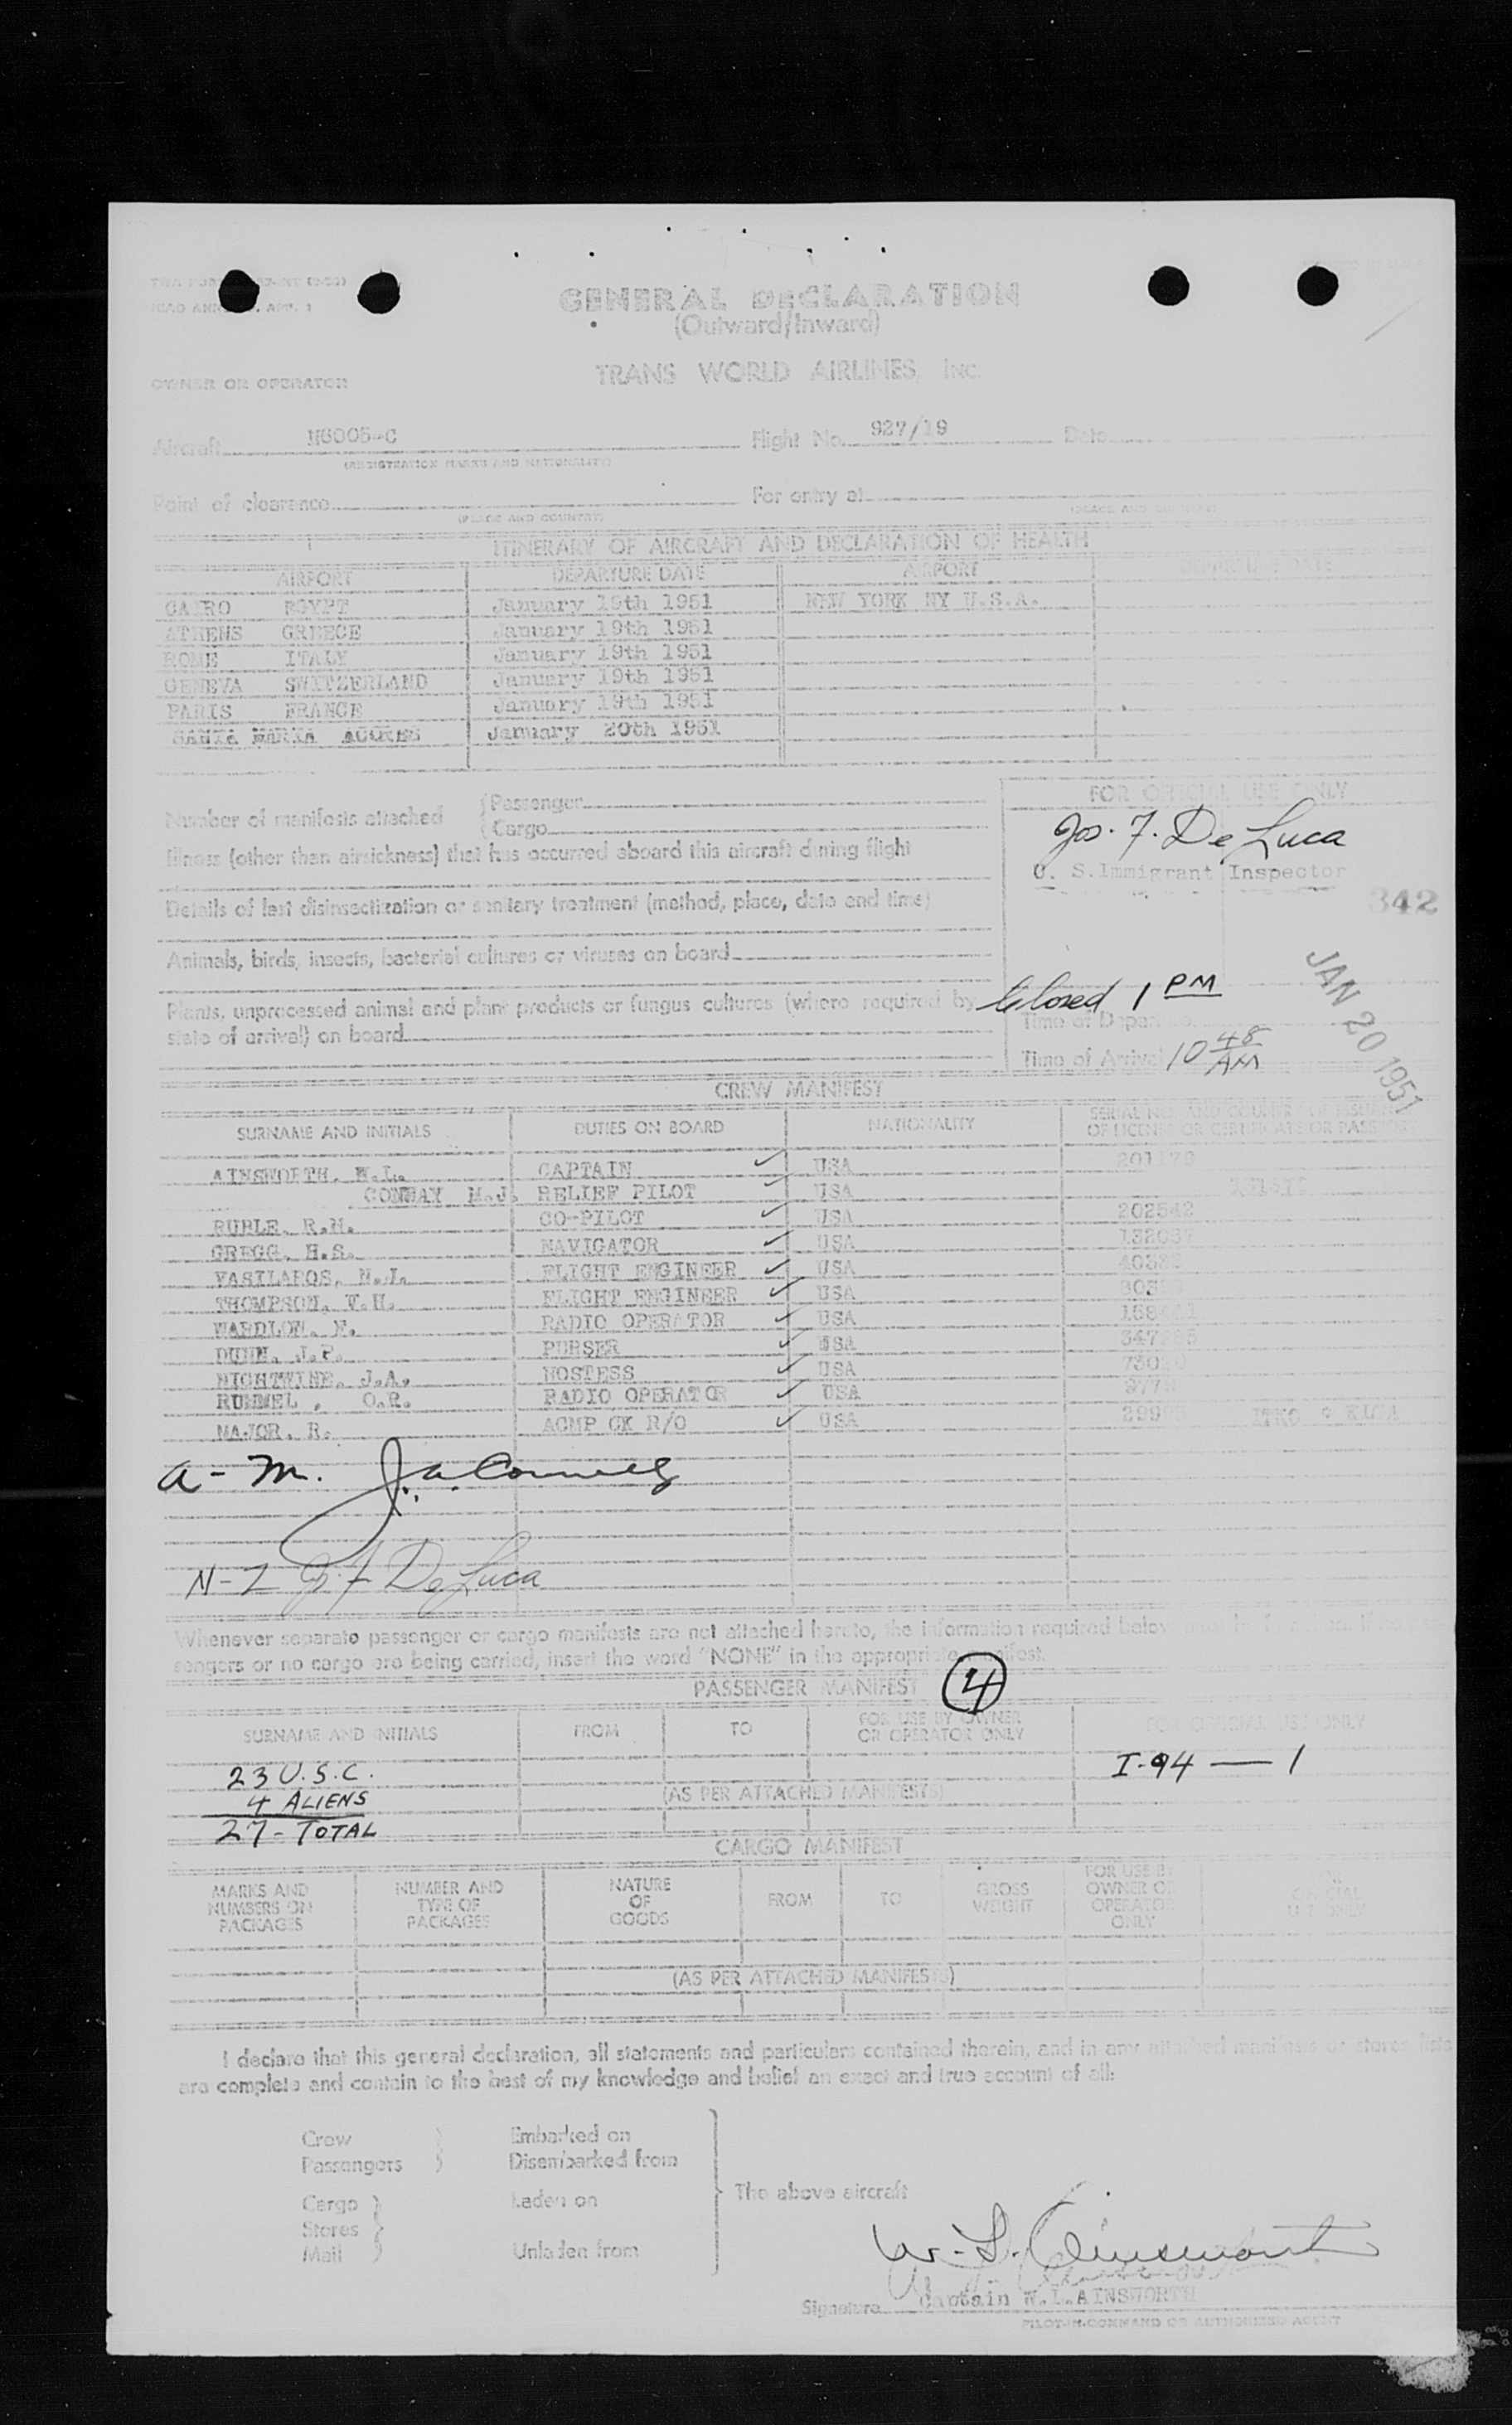 GENERAL DECLARATION
(Outward/Inward)
TRANS WORLD AIRLINES, INC.
OWNER OR OPERATOR
Aircraft N6005-C Flight No. 927/19 Date
(REGISTRATION MARKS AND NATIONALITY)
Point of clearance For entry at
(PLACE AND COUNTRY) (PLACE AND COUNTRY)
ITINERARY OF AIRCRAFT AND DECLARATION OF HEALTH
AIRPORT DEPARTURE DATE AIRPORT DEPARTURE DATE
CAIRO EGYPT January 19th 1951 NEW YORK NY U.S.A.
ATHENS GREECE January 19th 1951
ROME ITALY January 19th 1951
GENEVA SWITZERLAND January 19th 1951
PARIS FRANCE January 19th 1951
SANTA MARIA ACORES January 20th 1951
Number of manifests attached
Passenger
Cargo
FOR OFFICIAL USE ONLY
Jos. F. De Luca
U. S. Immigrant Inspector
342
Illness (other than airsickness) that has occurred aboard this aircraft during flight
Details of last disinsectization or sanitary treatment (method, place, date and time)
Animals, birds, insects, bacterial cultures or viruses on board
Plants, unprocessed animal and plant products or fungus cultures (where required by
state of arrival) on board
Closed 1 PM
JAN 20 1951
Time of Arrival 10 48 AM
CREW MANIFEST
SURNAME AND INITIALS DUTIES ON BOARD NATIONALITY
AINSWORTH, W.L. CAPTAIN ✓ USA
CONWAY M.J. RELIEF PILOT ✓ USA
RUBLE, R.H. CO-PILOT ✓ USA 202542
GREGG, H.S. NAVIGATOR ✓ USA
VASILAROS, N.J. FLIGHT ENGINEER ✓ USA
THOMPSON, T.H. FLIGHT ENGINEER ✓ USA
WARDLOW, F. RADIO OPERATOR ✓ USA
DUNN, J.P. PURSER ✓ USA
HIGHTWINE, J.A. HOSTESS ✓ USA
RUMMEL, O.R. RADIO OPERATOR ✓ USA
MAJOR, R. ACMP CK R/O ✓ USA
a - m. J. A.
N-2 J. F De Luca
Whenever separate passenger or cargo manifests are not attached hereto, the information required below
sengers or no cargo are being carried, insert the word "NONE" in the appropriate manifest.
PASSENGER MANIFEST 4
SURNAME AND INITIALS FROM TO FOR USE BY OWNER OR OPERATOR ONLY FOR OFFICIAL USE ONLY
23 U.S.C. I-94 — 1
4 ALIENS (AS PER ATTACHED MANIFESTS)
27 - TOTAL
CARGO MANIFEST
MARKS AND NUMBERS ON PACKAGES NUMBER AND TYPE OF PACKAGES NATURE OF GOODS FROM TO GROSS WEIGHT FOR USE BY OWNER OR OPERATOR ONLY
(AS PER ATTACHED MANIFESTS)
I declare that this general declaration, all statements and particulars contained therein, and in any attached manifests or stores lists
are complete and contain to the best of my knowledge and belief an exact and true account of all:
Crew Embarked on
Passengers Disembarked from
The above aircraft
Cargo Laden on
Stores
Mail Unladen from
W. L. Ainsworth
Signature Captain W.L.AINSWORTH
PILOT-IN-COMMAND OR AUTHORIZED AGENT